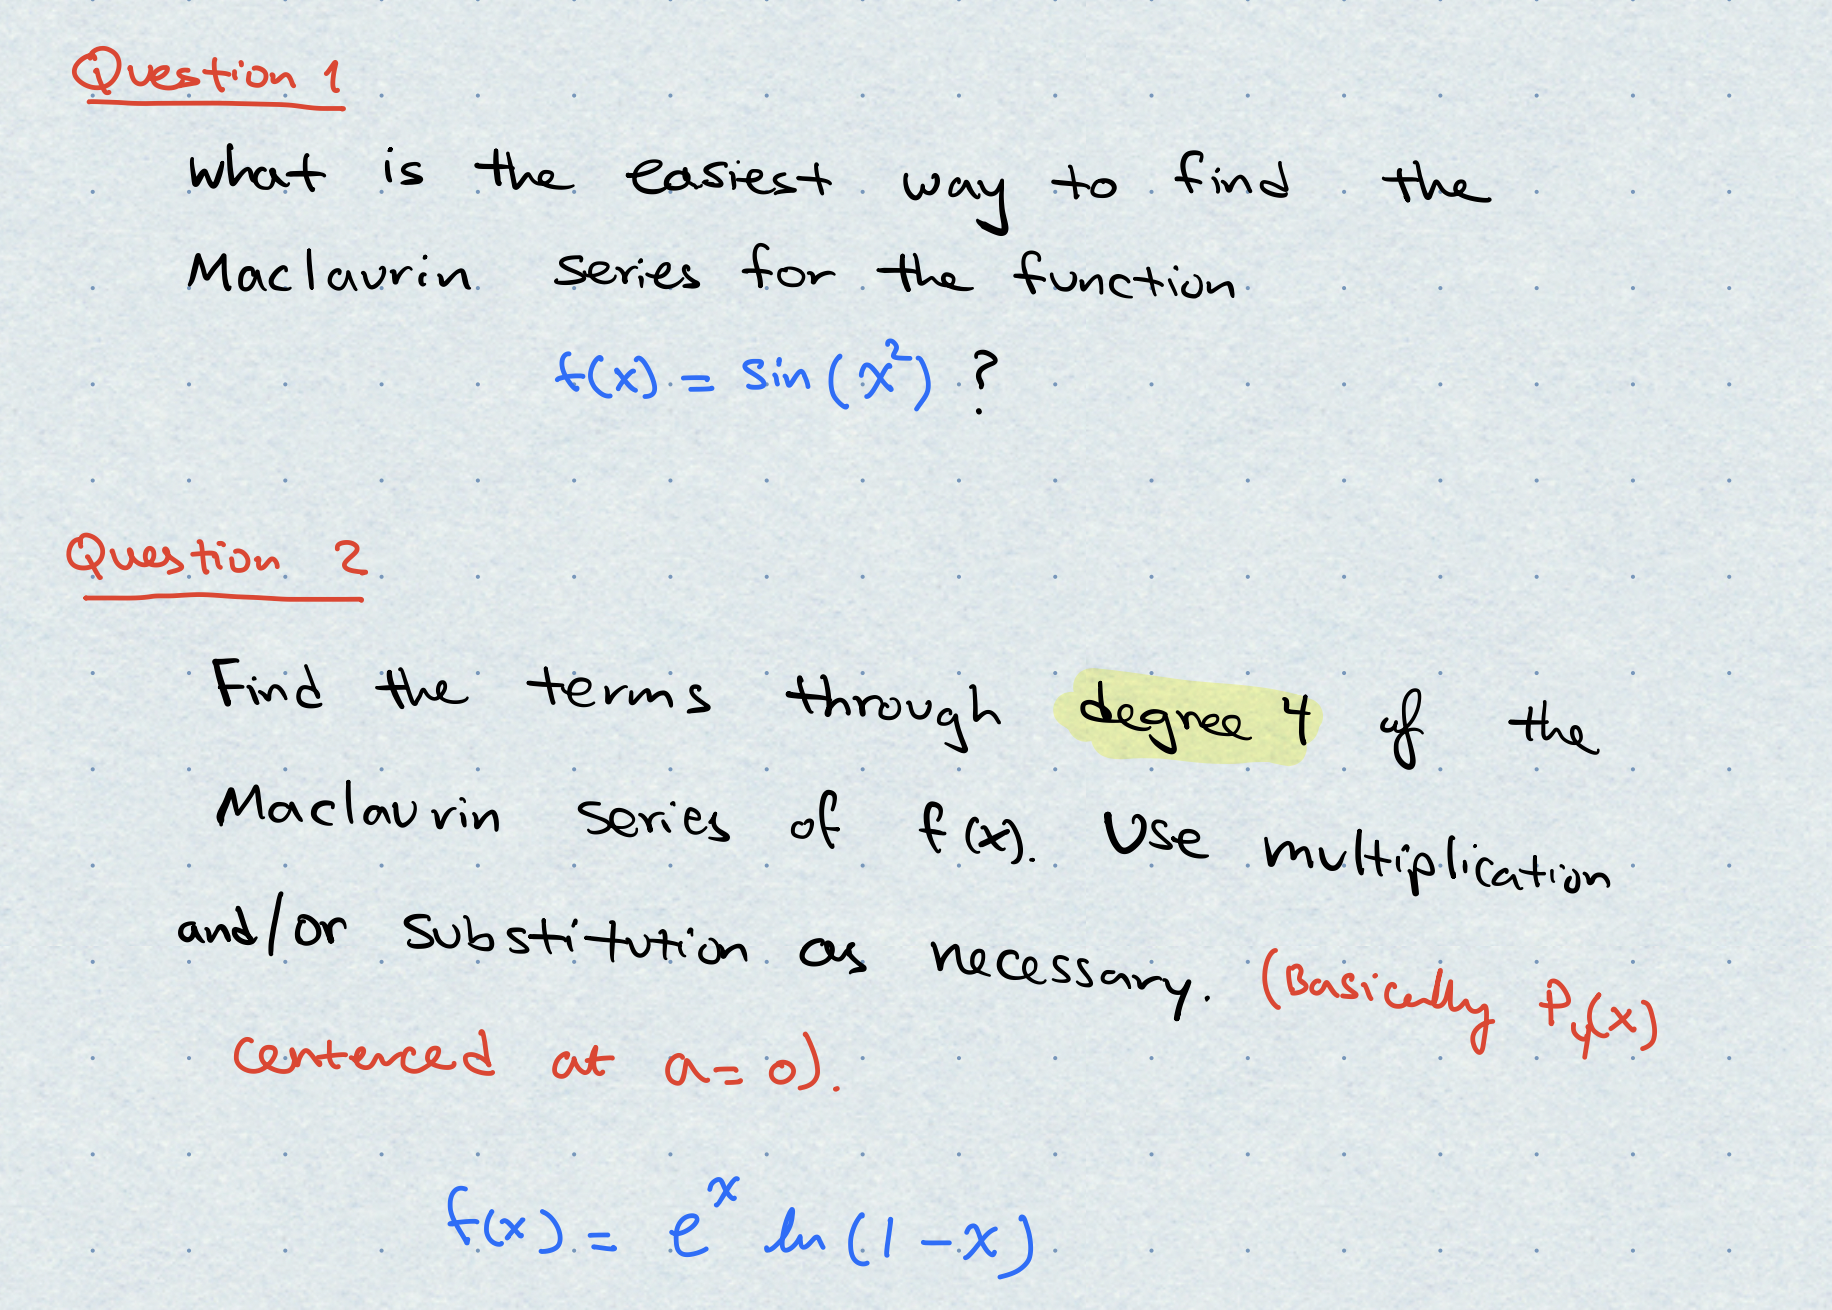 Question 1
What is the easiest way to find the
Maclaurin series for the function
f(x) = sin(x²) ?
Question 2
Find the terms through degree 4 of the
Maclaurin series of f(x). Use multiplication
and/or substitution as necessary. (Basically P₄(x)
centered at a=0).
f(x) = eˣ ln(1-x)